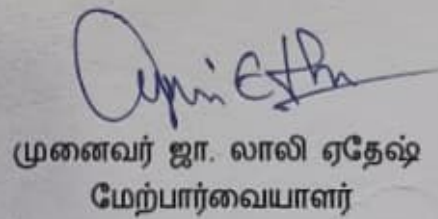 முனைவர் ஜா. லாலி ஏதேஷ்
மேற்பார்வையாளர்